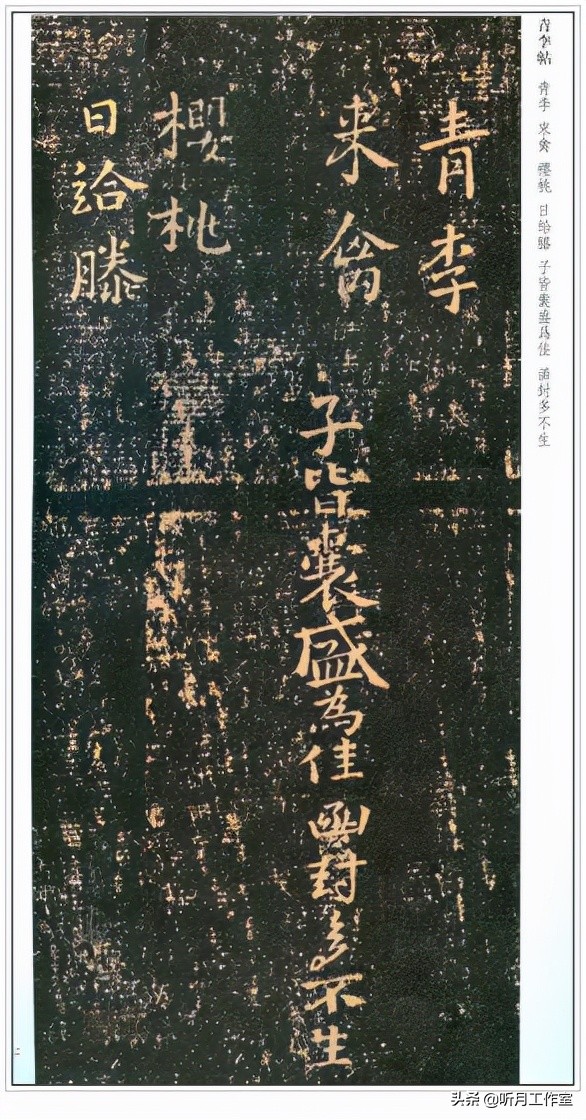 青李帖 青李 來禽 櫻桃 日給滕 子皆囊盛為佳 函封多不生
青李
来禽
櫻桃
日給滕
子皆囊盛為佳 函封多不生
头条 @听月工作室